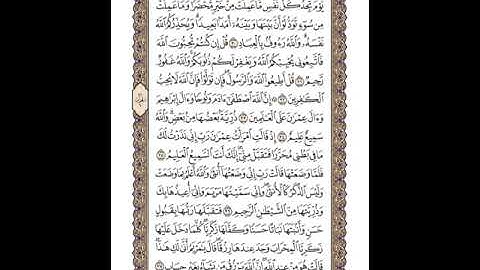 يَوْمَ تَجِدُ كُلُّ نَفْسٍ مَّا عَمِلَتْ مِنْ خَيْرٍ مُّحْضَرًا وَمَا عَمِلَتْ
مِن سُوٓءٍ تَوَدُّ لَوْ أَنَّ بَيْنَهَا وَبَيْنَهُۥٓ أَمَدًۢا بَعِيدًا ۗ وَيُحَذِّرُكُمُ ٱللَّهُ
نَفْسَهُۥ ۗ وَٱللَّهُ رَءُوفٌۢ بِٱلْعِبَادِ ۝٣٠ قُلْ إِن كُنتُمْ تُحِبُّونَ ٱللَّهَ
فَٱتَّبِعُونِى يُحْبِبْكُمُ ٱللَّهُ وَيَغْفِرْ لَكُمْ ذُنُوبَكُمْ ۗ وَٱللَّهُ غَفُورٌ
رَّحِيمٌ ۝٣١ قُلْ أَطِيعُوا۟ ٱللَّهَ وَٱلرَّسُولَ ۖ فَإِن تَوَلَّوْا۟ فَإِنَّ ٱللَّهَ لَا يُحِبُّ
ٱلْكَـٰفِرِينَ ۝٣٢ ۞ إِنَّ ٱللَّهَ ٱصْطَفَىٰٓ ءَادَمَ وَنُوحًا وَءَالَ إِبْرَٰهِيمَ
وَءَالَ عِمْرَٰنَ عَلَى ٱلْعَـٰلَمِينَ ۝٣٣ ذُرِّيَّةًۢ بَعْضُهَا مِنۢ بَعْضٍ ۗ وَٱللَّهُ
سَمِيعٌ عَلِيمٌ ۝٣٤ إِذْ قَالَتِ ٱمْرَأَتُ عِمْرَٰنَ رَبِّ إِنِّى نَذَرْتُ لَكَ
مَا فِى بَطْنِى مُحَرَّرًا فَتَقَبَّلْ مِنِّىٓ ۖ إِنَّكَ أَنتَ ٱلسَّمِيعُ ٱلْعَلِيمُ ۝٣٥
فَلَمَّا وَضَعَتْهَا قَالَتْ رَبِّ إِنِّى وَضَعْتُهَآ أُنثَىٰ وَٱللَّهُ أَعْلَمُ بِمَا وَضَعَتْ
وَلَيْسَ ٱلذَّكَرُ كَٱلْأُنثَىٰ ۖ وَإِنِّى سَمَّيْتُهَا مَرْيَمَ وَإِنِّىٓ أُعِيذُهَا بِكَ
وَذُرِّيَّتَهَا مِنَ ٱلشَّيْطَـٰنِ ٱلرَّجِيمِ ۝٣٦ فَتَقَبَّلَهَا رَبُّهَا بِقَبُولٍ
حَسَنٍ وَأَنۢبَتَهَا نَبَاتًا حَسَنًا وَكَفَّلَهَا زَكَرِيَّا ۖ كُلَّمَا دَخَلَ عَلَيْهَا
زَكَرِيَّا ٱلْمِحْرَابَ وَجَدَ عِندَهَا رِزْقًا ۖ قَالَ يَـٰمَرْيَمُ أَنَّىٰ لَكِ هَـٰذَا ۖ
قَالَتْ هُوَ مِنْ عِندِ ٱللَّهِ ۖ إِنَّ ٱللَّهَ يَرْزُقُ مَن يَشَآءُ بِغَيْرِ حِسَابٍ ۝٣٧